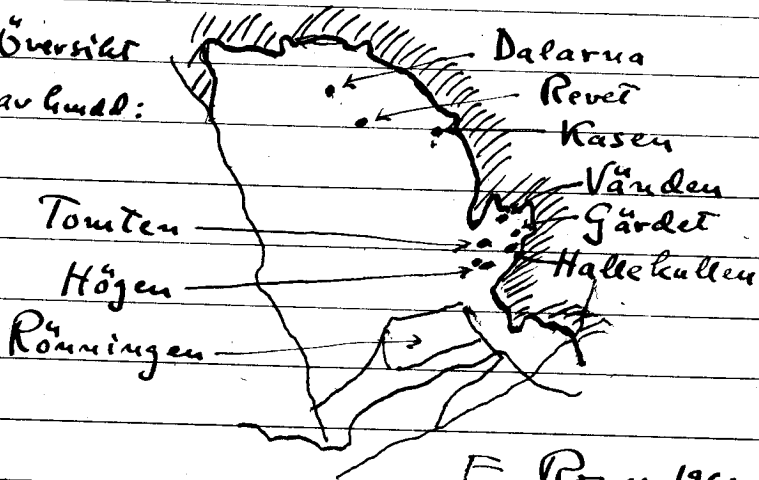 Översikt
av
Dalarna
Revet
Kasen
Vänden
Gärdet
Hallekullen
Tomten
Högen
Rönningen